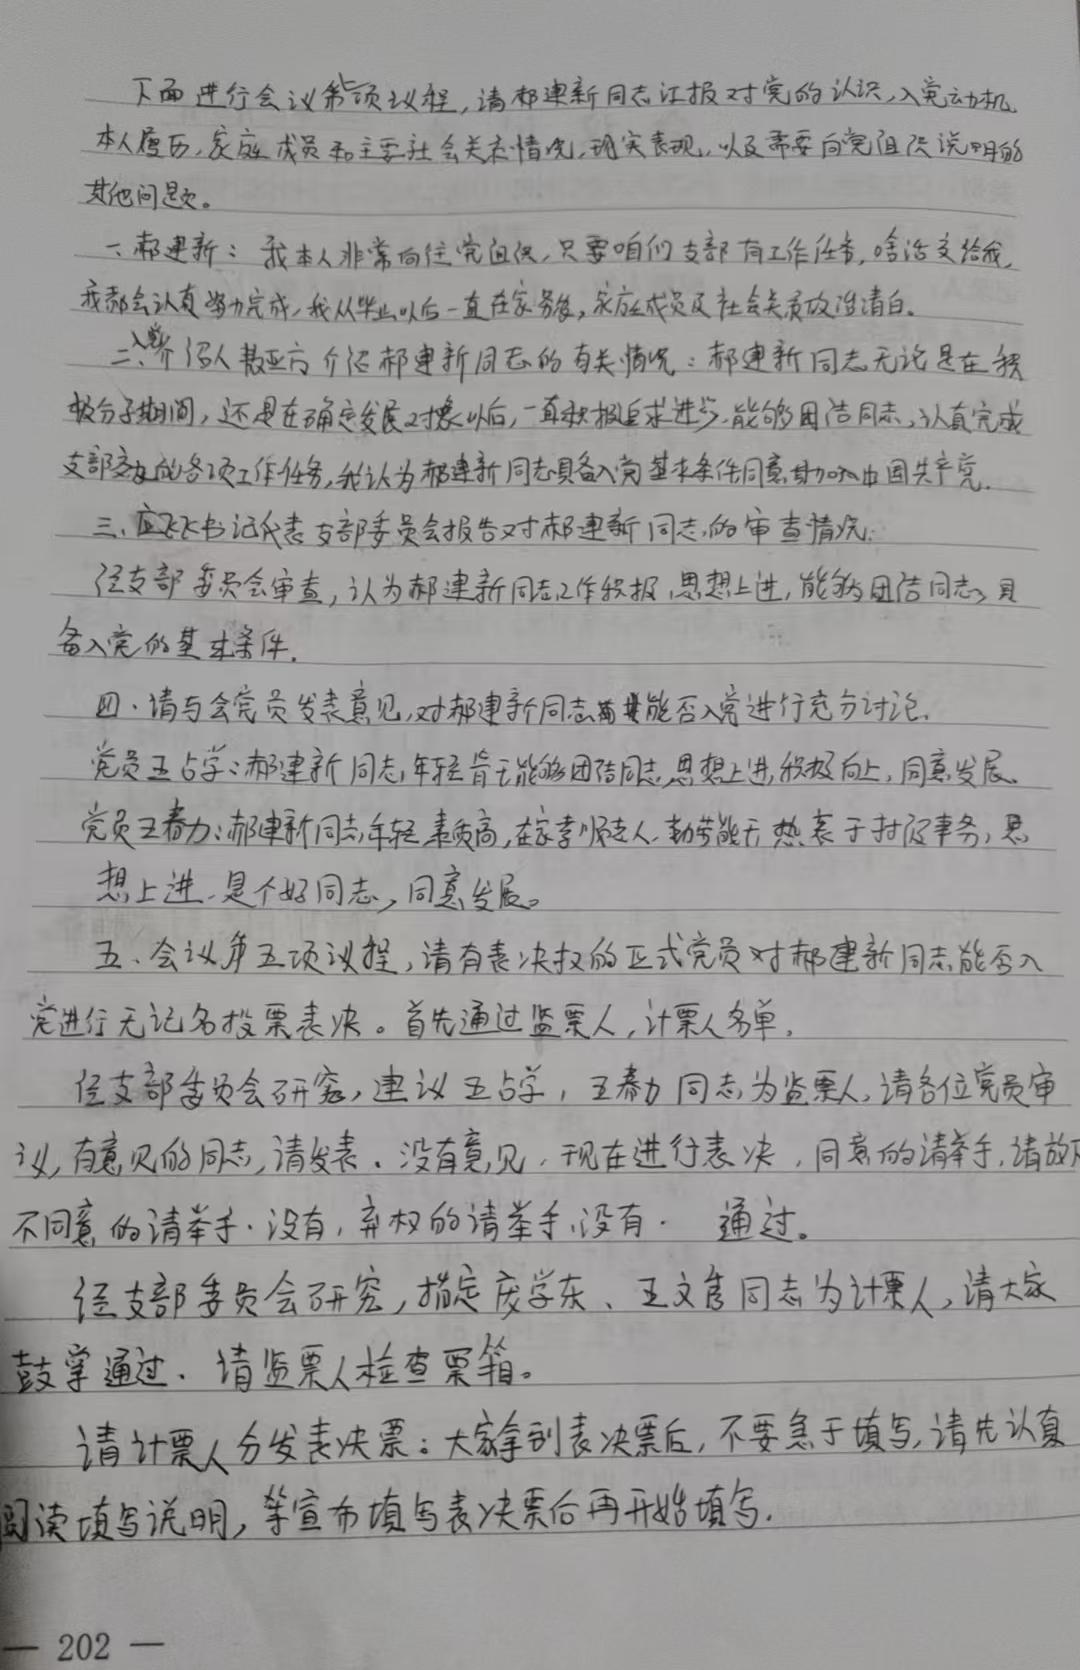 下面进行会议第一项议程,请郝建新同志汇报对党的认识,入党动机,
本人履历,家庭成员和主要社会关系情况,现实表现,以及需要向党组织说明的
其他问题。
一、郝建新:我本人非常向往党组织,只要咱们支部有工作任务,啥活交给我,
我都会认真努力完成,我从毕业以后一直在家务农,家庭成员及社会关系政治清白。
二、入党介绍人 介绍郝建新同志的有关情况:郝建新同志无论是在积
极分子期间,还是在确定发展对象以后,一直积极追求进步,能够团结同志,认真完成
支部交办的各项工作任务,我认为郝建新同志具备入党基本条件同意其加入中国共产党.
三、 书记代表支部委员会报告对郝建新同志的审查情况:
经支部委员会审查,认为郝建新同志工作积极,思想上进,能够团结同志,具
备入党的基本条件.
四、请与会党员发表意见,对郝建新同志 能否入党进行充分讨论.
党员王占学:郝建新同志,年轻肯干能够团结同志,思想上进,积极向上,同意发展.
党员王春力:郝建新同志,年轻,素质高,在家孝顺老人,勤劳能干,热衷于村级事务,思
想上进,是个好同志,同意发展。
五、会议第五项议程,请有表决权的正式党员对郝建新同志能否入
党进行无记名投票表决。首先通过监票人,计票人名单.
经支部委员会研究,建议王占学,王春力同志为监票人,请各位党员审
议,有意见的同志,请发表.没有意见,现在进行表决,同意的请举手,请放下
不同意的请举手.没有,弃权的请举手,没有. 通过。
经支部委员会研究,指定庞学东、王文 同志为计票人,请大家
鼓掌通过.请监票人检查票箱。
请计票人分发表决票:大家拿到表决票后,不要急于填写,请先认真
阅读填写说明,等宣布填写表决票后再开始填写.
— 202 —